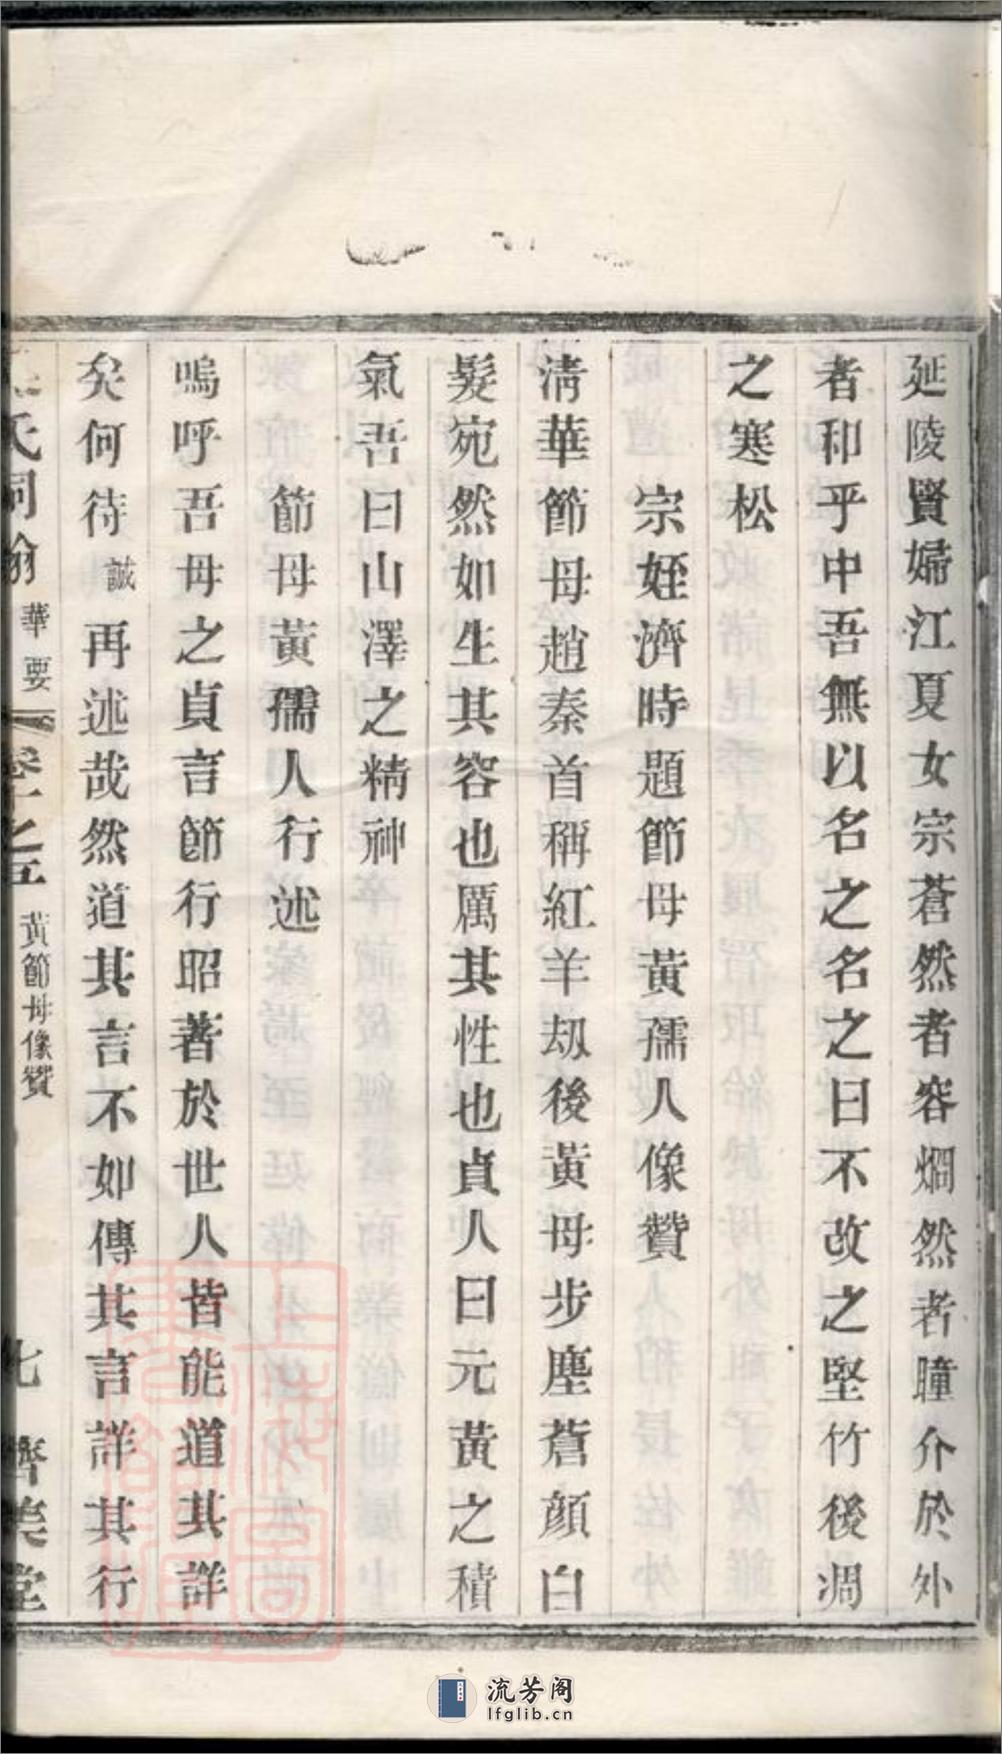 延陵賢婦江夏女宗蒼然者容烱然者瞳介於外
者和乎中吾無以名之名之曰不改之堅竹後凋
之寒松
宗姪濟時題節母黃孺人像贊
淸華節母趙秦首稱紅羊刼後黃母步塵蒼顔白
髮宛然如生其容也厲其性也貞人曰元黃之積
氣吾曰山澤之精神
節母黃孺人行述
嗚呼吾母之貞言節行昭著於世人皆能道其詳
矣何待誠再述哉然道其言不如傳其言詳其行
氏詞翰 華要 卷十之五 黃節母像贊 化 濟美堂
流芳阁
lfglib.cn